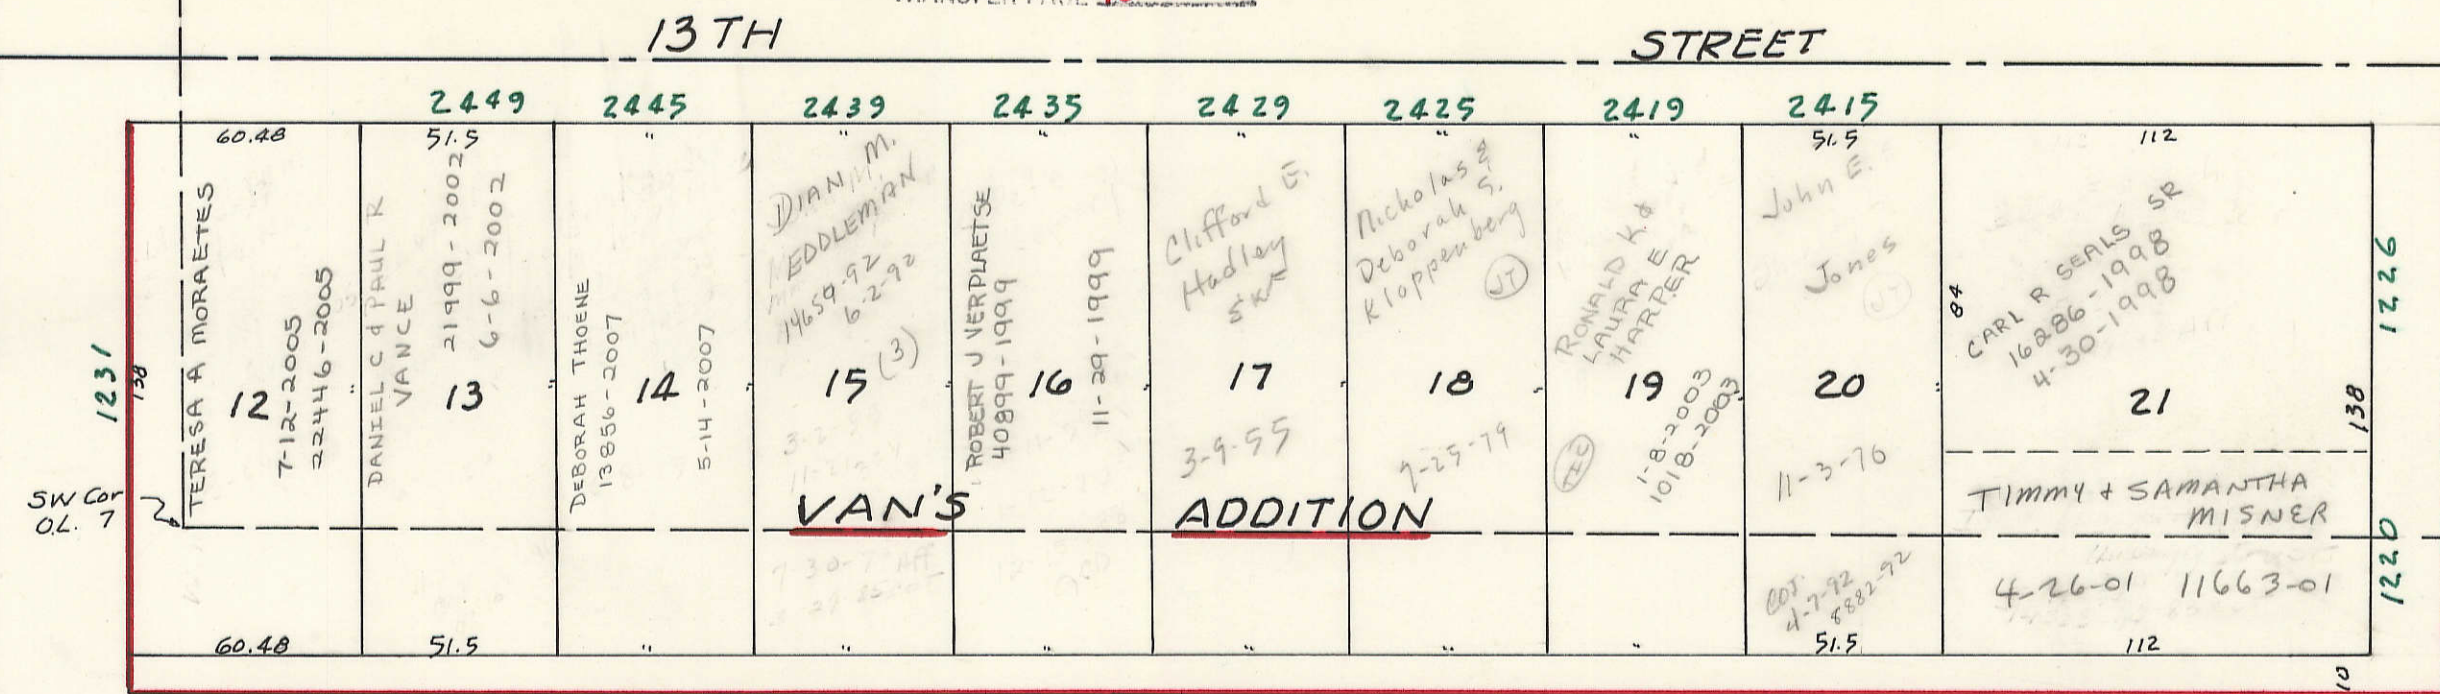 13TH STREET
2449 2445 2439 2435 2429 2425 2419 2415
60.48 51.5 " " " " " " 51.5 112
1231
138
SW Cor
O.L. 7
TERESA A MORAETES
12
7-12-2005
22446-2005
"
DANIEL C & PAUL R
VANCE
13
21999-2002
6-6-2002
"
DEBORAH THOENE
13856-2007
14
5-14-2007
"
DIAN M.
EDDLEMAN
14659-92
6-2-92
(3)
15
"
ROBERT J VERPLAETSE
40899-1999
16
11-29-1999
"
Clifford E.
Hadley
17
"
3-9-55
Nicholas &
Deborah S.
Kloppenberg
JT
18
"
RONALD K. &
LAURA E
HARPER
19
"
1-8-2003
1018-2003
John E.
Jones
JT
20
"
11-3-76
COT
4-7-92
8882-92
84
CARL R SEALS SR
16286-1998
4-30-1998
21
138
1226
TIMMY & SAMANTHA
MISNER
4-26-01 11663-01
1220
VAN'S ADDITION
60.48 51.5 " " " " " " 51.5 112
10